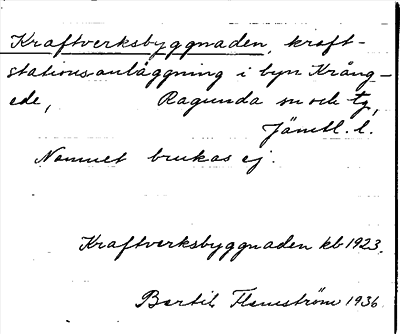 Kraftverksbyggnaden, kraft-
stationsanläggning i byn Krång-
ede, Ragunda sn och tg,
Jämtl. l.
Namnet brukas ej.
Kraftverksbyggnaden kb 1923.
Bertil Flemström 1936